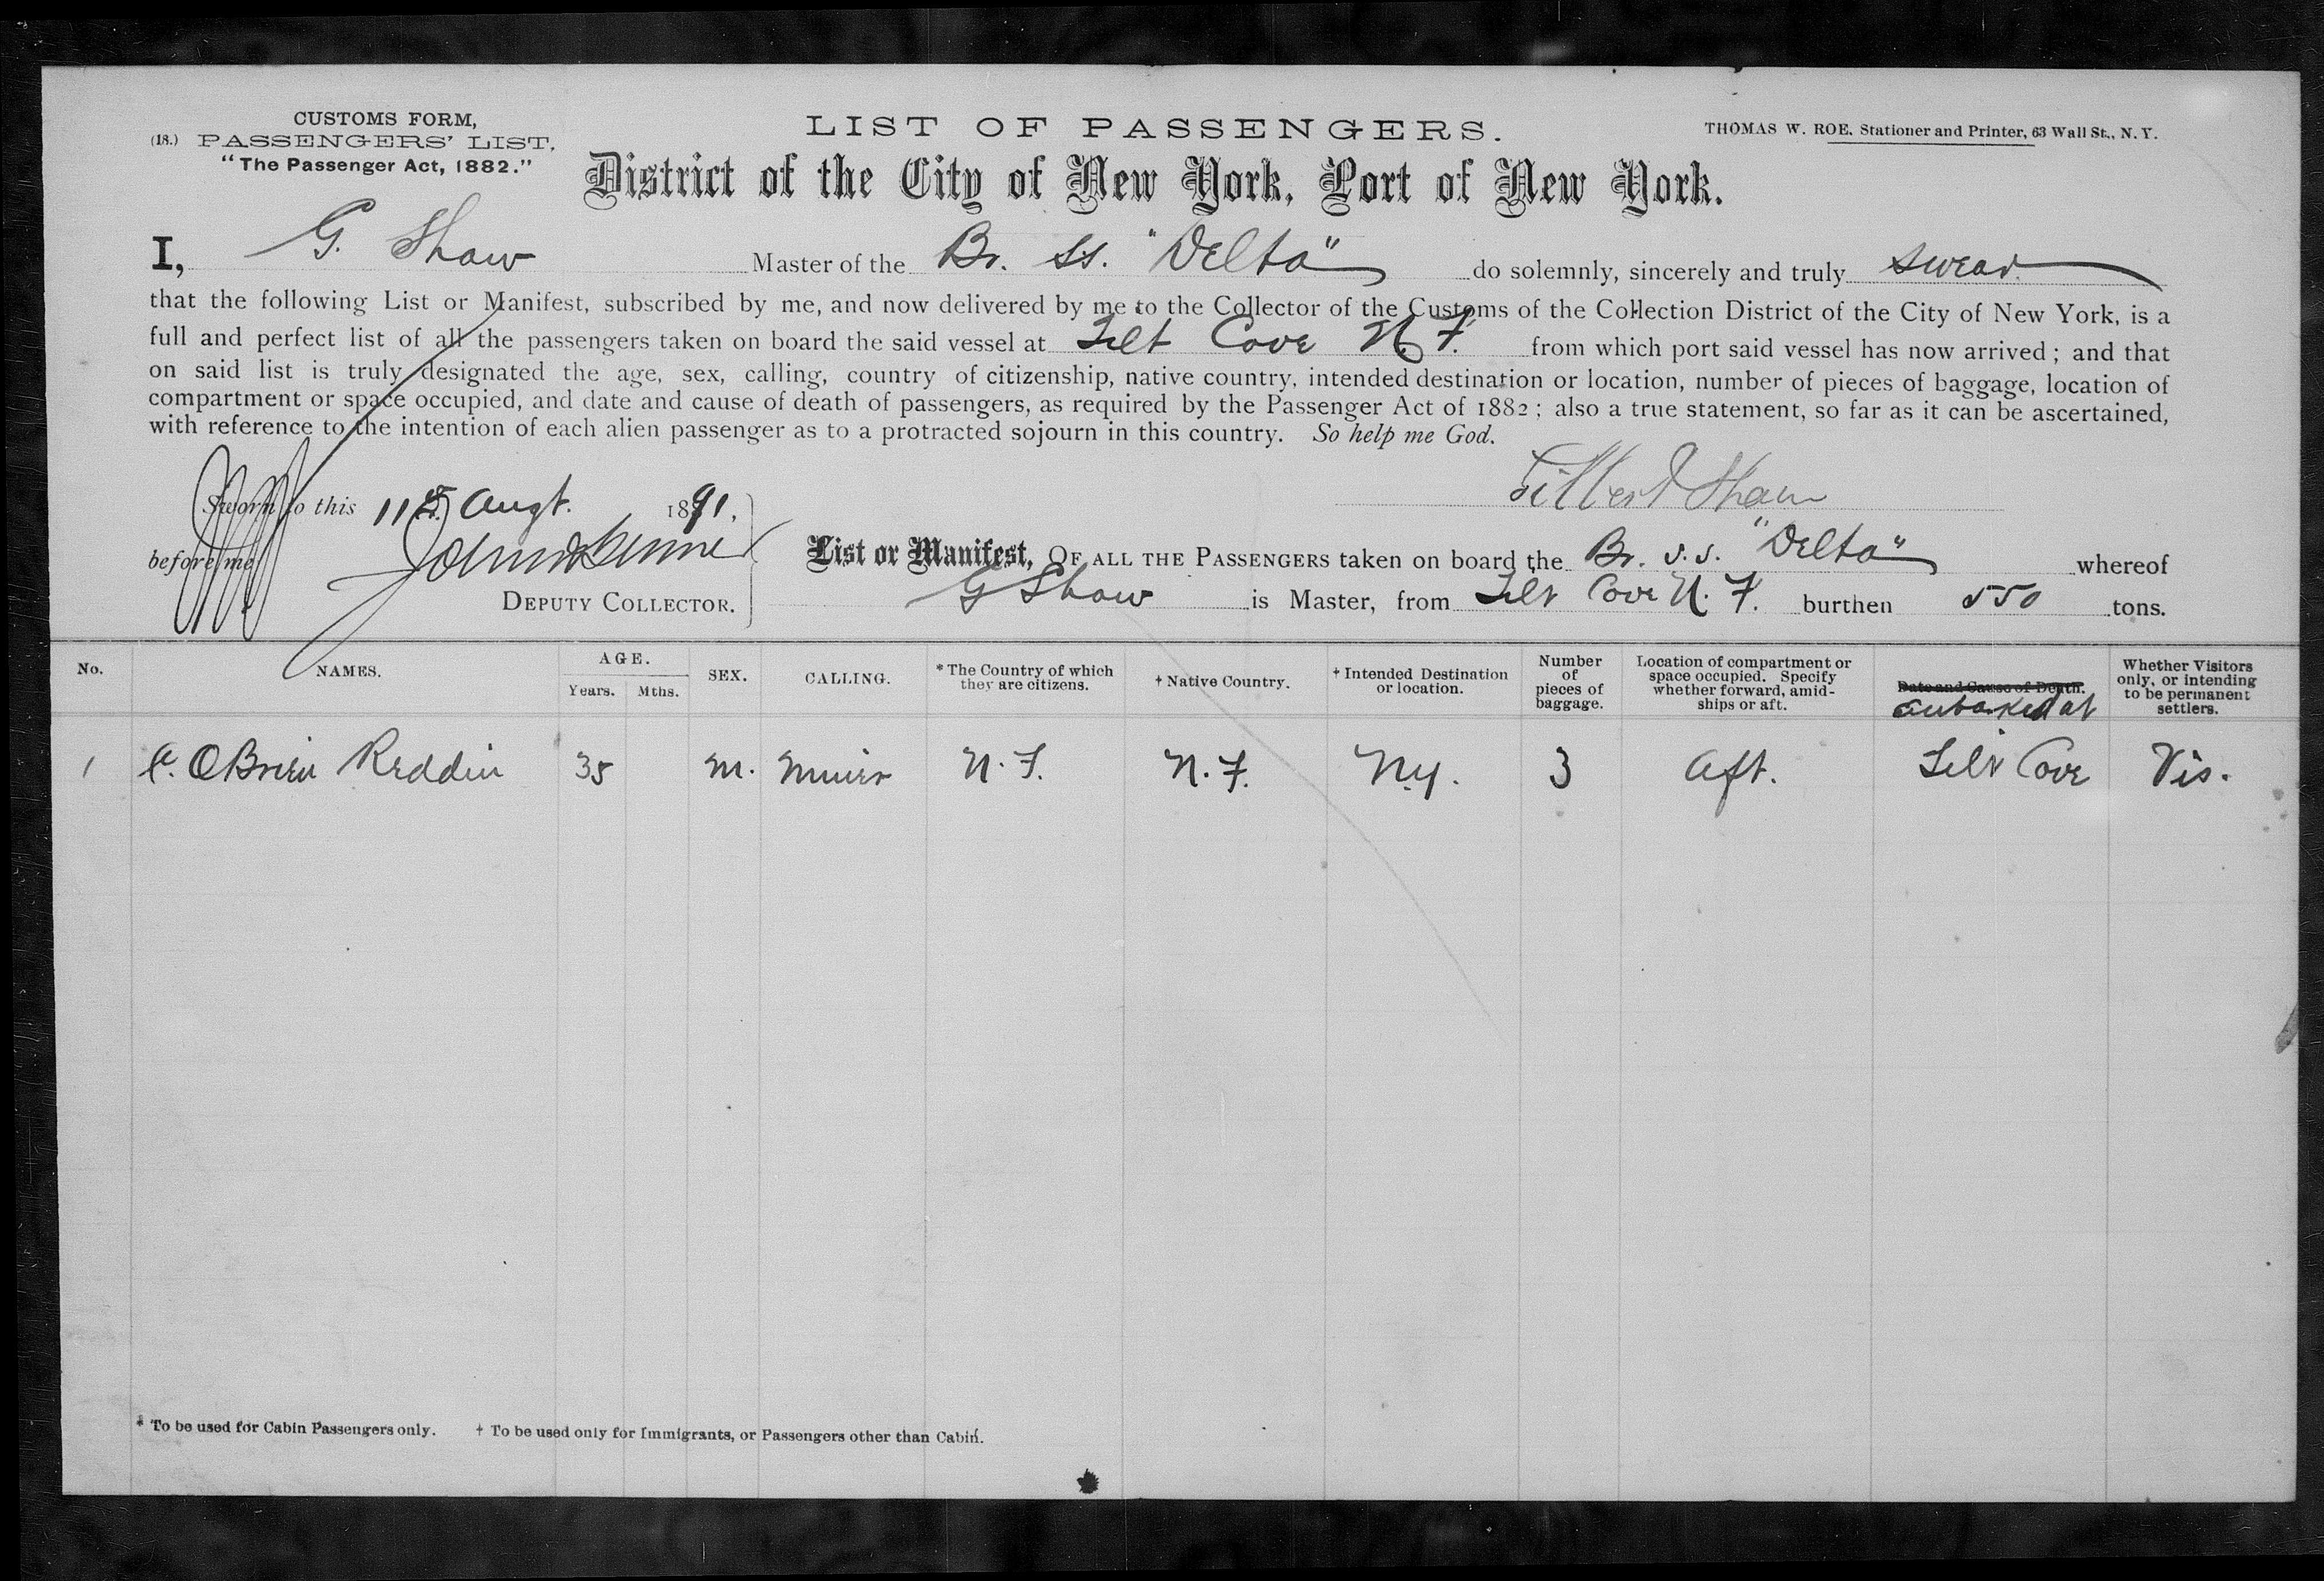 CUSTOMS FORM,
(18.) PASSENGERS' LIST,
"The Passenger Act, 1882."
LIST OF PASSENGERS.
THOMAS W. ROE, Stationer and Printer, 63 Wall St., N. Y.
District of the City of New York, Port of New York.
I, G. Shaw Master of the Br. SS. "Delta" do solemnly, sincerely and truly swear
that the following List or Manifest, subscribed by me, and now delivered by me to the Collector of the Customs of the Collection District of the City of New York, is a
full and perfect list of all the passengers taken on board the said vessel at Tilt Cove N. F. from which port said vessel has now arrived; and that
on said list is truly designated the age, sex, calling, country of citizenship, native country, intended destination or location, number of pieces of baggage, location of
compartment or space occupied, and date and cause of death of passengers, as required by the Passenger Act of 1882; also a true statement, so far as it can be ascertained,
with reference to the intention of each alien passenger as to a protracted sojourn in this country. So help me God.
Gilbert Shaw
Sworn to this 11th Augt. 1891.
before me
DEPUTY COLLECTOR.
List or Manifest, OF ALL THE PASSENGERS taken on board the Br. S.S. "Delta" whereof
G Shaw is Master, from Tilt Cove N. F. burthen 550 tons.
No. NAMES. AGE. Years. Mths. SEX. CALLING. * The Country of which they are citizens. † Native Country. † Intended Destination or location. Number of pieces of baggage. Location of compartment or space occupied. Specify whether forward, amidships or aft. Date and Cause of Death. Embarked at Whether Visitors only, or intending to be permanent settlers.
1 O'Brien Reddin 35 M. Miner N. F. N. F. N.Y. 3 Aft. Tilt Cove Vis.
* To be used for Cabin Passengers only. † To be used only for Immigrants, or Passengers other than Cabin.